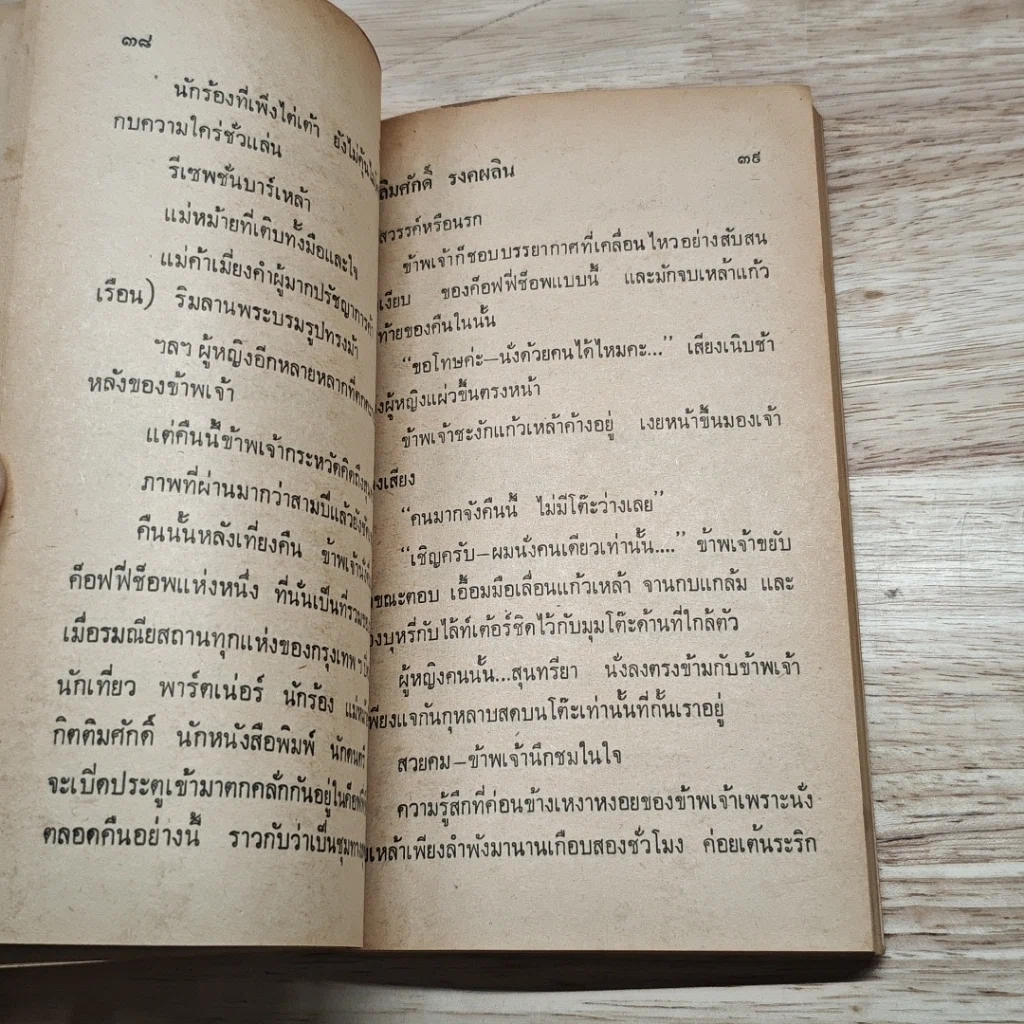 ๓๘
นักร้องที่เพิ่งไต่เต้า ยังไม่คุ้น
กบความใคร่ชั่วแล่น
รีเซพชั่นบาร์เหล้า
แม่หม้ายที่เติบทั้งมือและใจ
แม่ค้าเมี่ยงคำผู้มากปรัชญาการค้า
เรือน) ริมลานพระบรมรูปทรงม้า
ฯลฯ ผู้หญิงอีกหลายหลากที่ตกค
หลังของข้าพเจ้า
แต่คืนนี้ข้าพเจ้ากระหวัดคิดถึง
ภาพที่ผ่านมากว่าสามปีแล้วยัง
คืนนั้นหลังเที่ยงคืน ข้าพเจ้านั่ง
ค็อฟฟี่ช็อพแห่งหนึ่ง ที่นั่นเป็นที่รวม
เมื่อรมณียสถานทุกแห่งของกรุงเทพฯ
นักเที่ยว พาร์ตเน่อร์ นักร้อง
กิตติมศักดิ์ นักหนังสือพิมพ์ นักดนตรี
จะเปิดประตูเข้ามาตกคลั่กกันอยู่ใน
ตลอดคืนอย่างนี้ ราวกับว่าเป็นชุมทาง
ลิมศักดิ์ รงคผลิน ๓๙
สวรรค์หรือนรก
ข้าพเจ้าก็ชอบบรรยากาศที่เคลื่อนไหวอย่างสับสน
เงียบ ของค็อฟฟี่ช็อพแบบนี้ และมักจบเหล้าแก้ว
ท้ายของคืนในนั้น
“ขอโทษค่ะ—นั่งด้วยคนได้ไหมคะ...” เสียงเนิบช้า
งผู้หญิงแผ่วขึ้นตรงหน้า
ข้าพเจ้าชะงักแก้วเหล้าค้างอยู่ เงยหน้าขึ้นมองเจ้า
งเสียง
“คนมากจังคืนนี้ ไม่มีโต๊ะว่างเลย”
“เชิญครับ—ผมนั่งคนเดียวเท่านั้น....” ข้าพเจ้าขยับ
ขณะตอบ เอื้อมมือเลื่อนแก้วเหล้า จานกบแกล้ม และ
งบุหรี่กับไล้ท์เต้อร์ชิดไว้กับมุมโต๊ะด้านที่ใกล้ตัว
ผู้หญิงคนนั้น...สุนทรียา นั่งลงตรงข้ามกับข้าพเจ้า
เพียงแจกันกุหลาบสดบนโต๊ะเท่านั้นที่กั้นเราอยู่
สวยคม—ข้าพเจ้านึกชมในใจ
ความรู้สึกที่ค่อนข้างเหงาหงอยของข้าพเจ้าเพราะนั่ง
เหล้าเพียงลำพังมานานเกือบสองชั่วโมง ค่อยเต้นระริก